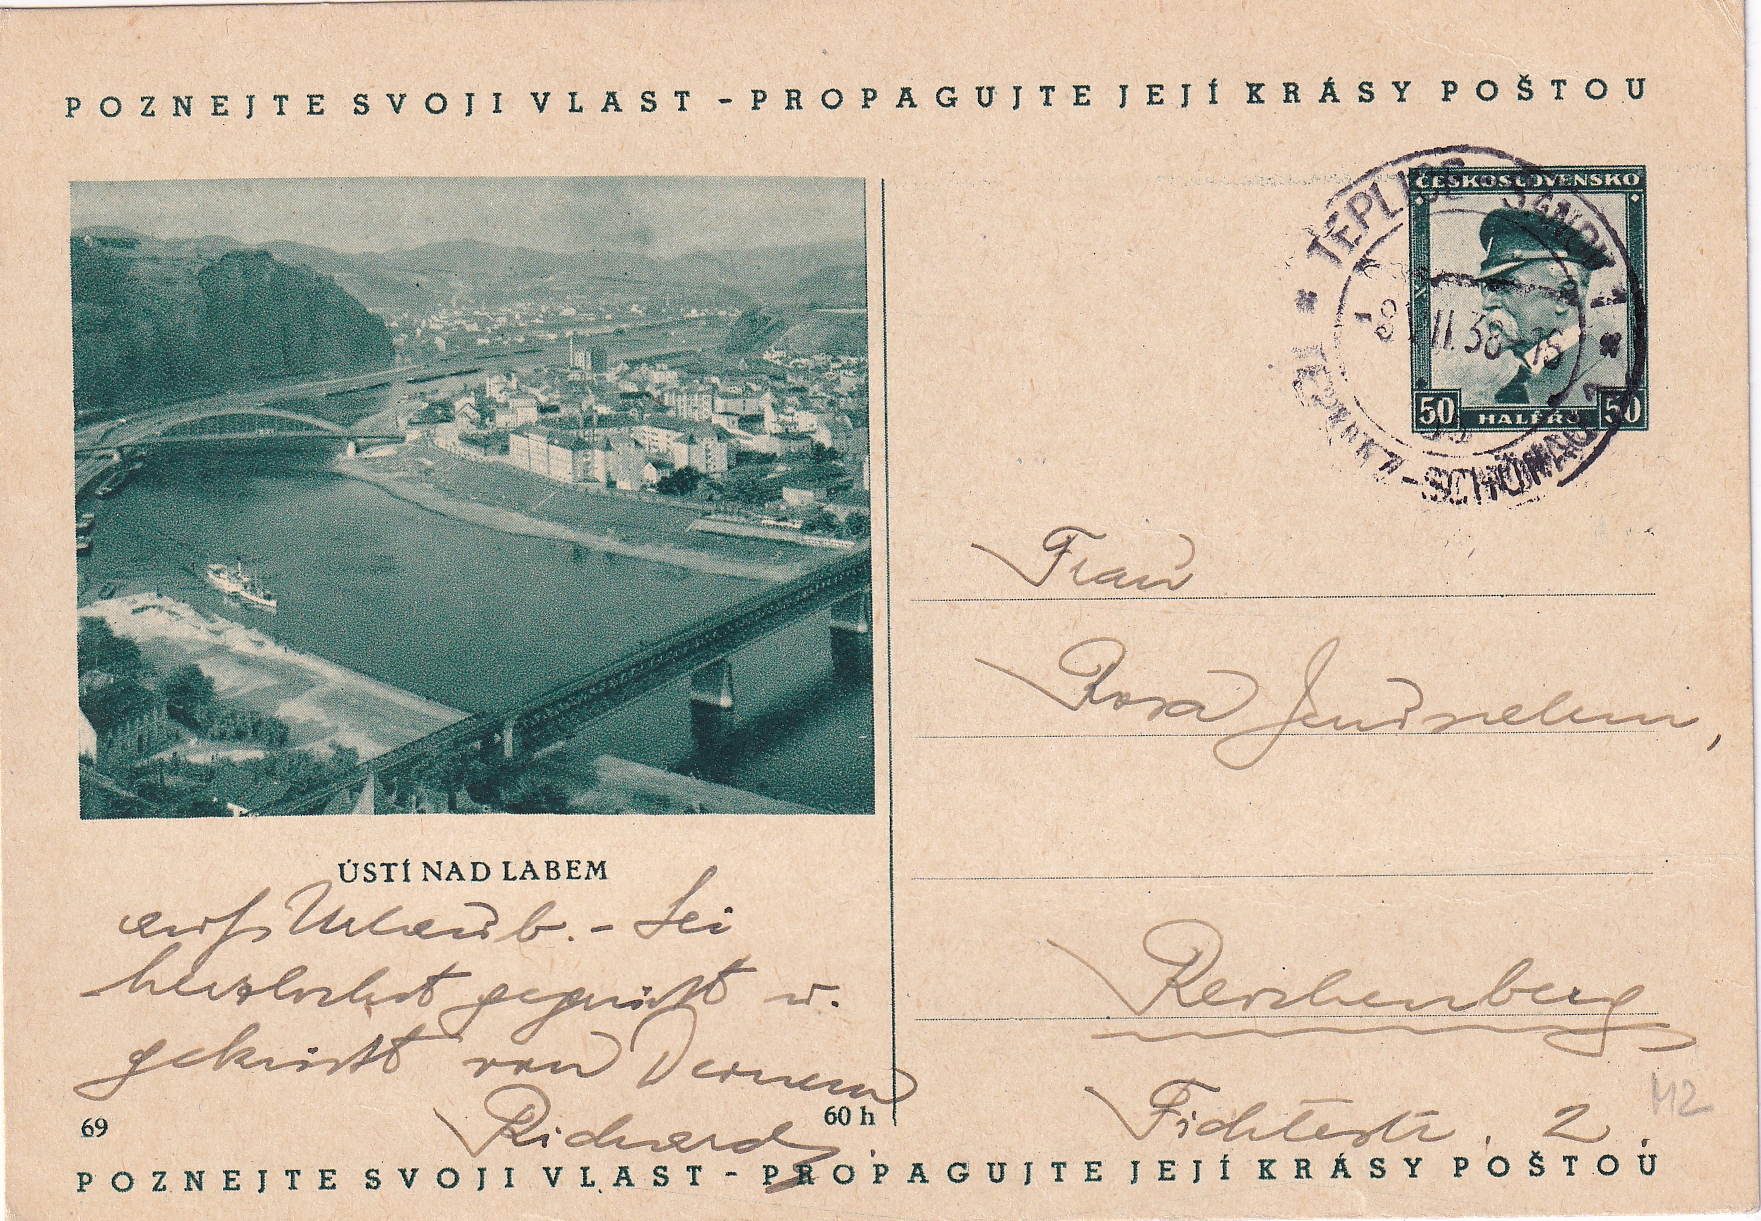 POZNEJTE SVOJI VLAST - PROPAGUJTE JEJÍ KRÁSY POŠTOU
ČESKOSLOVENSKO
TEPLICE - ŠANOV 1
II. 38
TEPLITZ - SCHÖNAU 1
50 HALÉŘŮ 50
Frau
Rosa
Reichenberg
Fichtestr. 2.
M2
ÚSTÍ NAD LABEM
auf Urlaub. - Sei
herzlichst gegrüßt u.
geküsst von Deinem
Richard.
69
60 h
POZNEJTE SVOJI VLAST - PROPAGUJTE JEJÍ KRÁSY POŠTOU